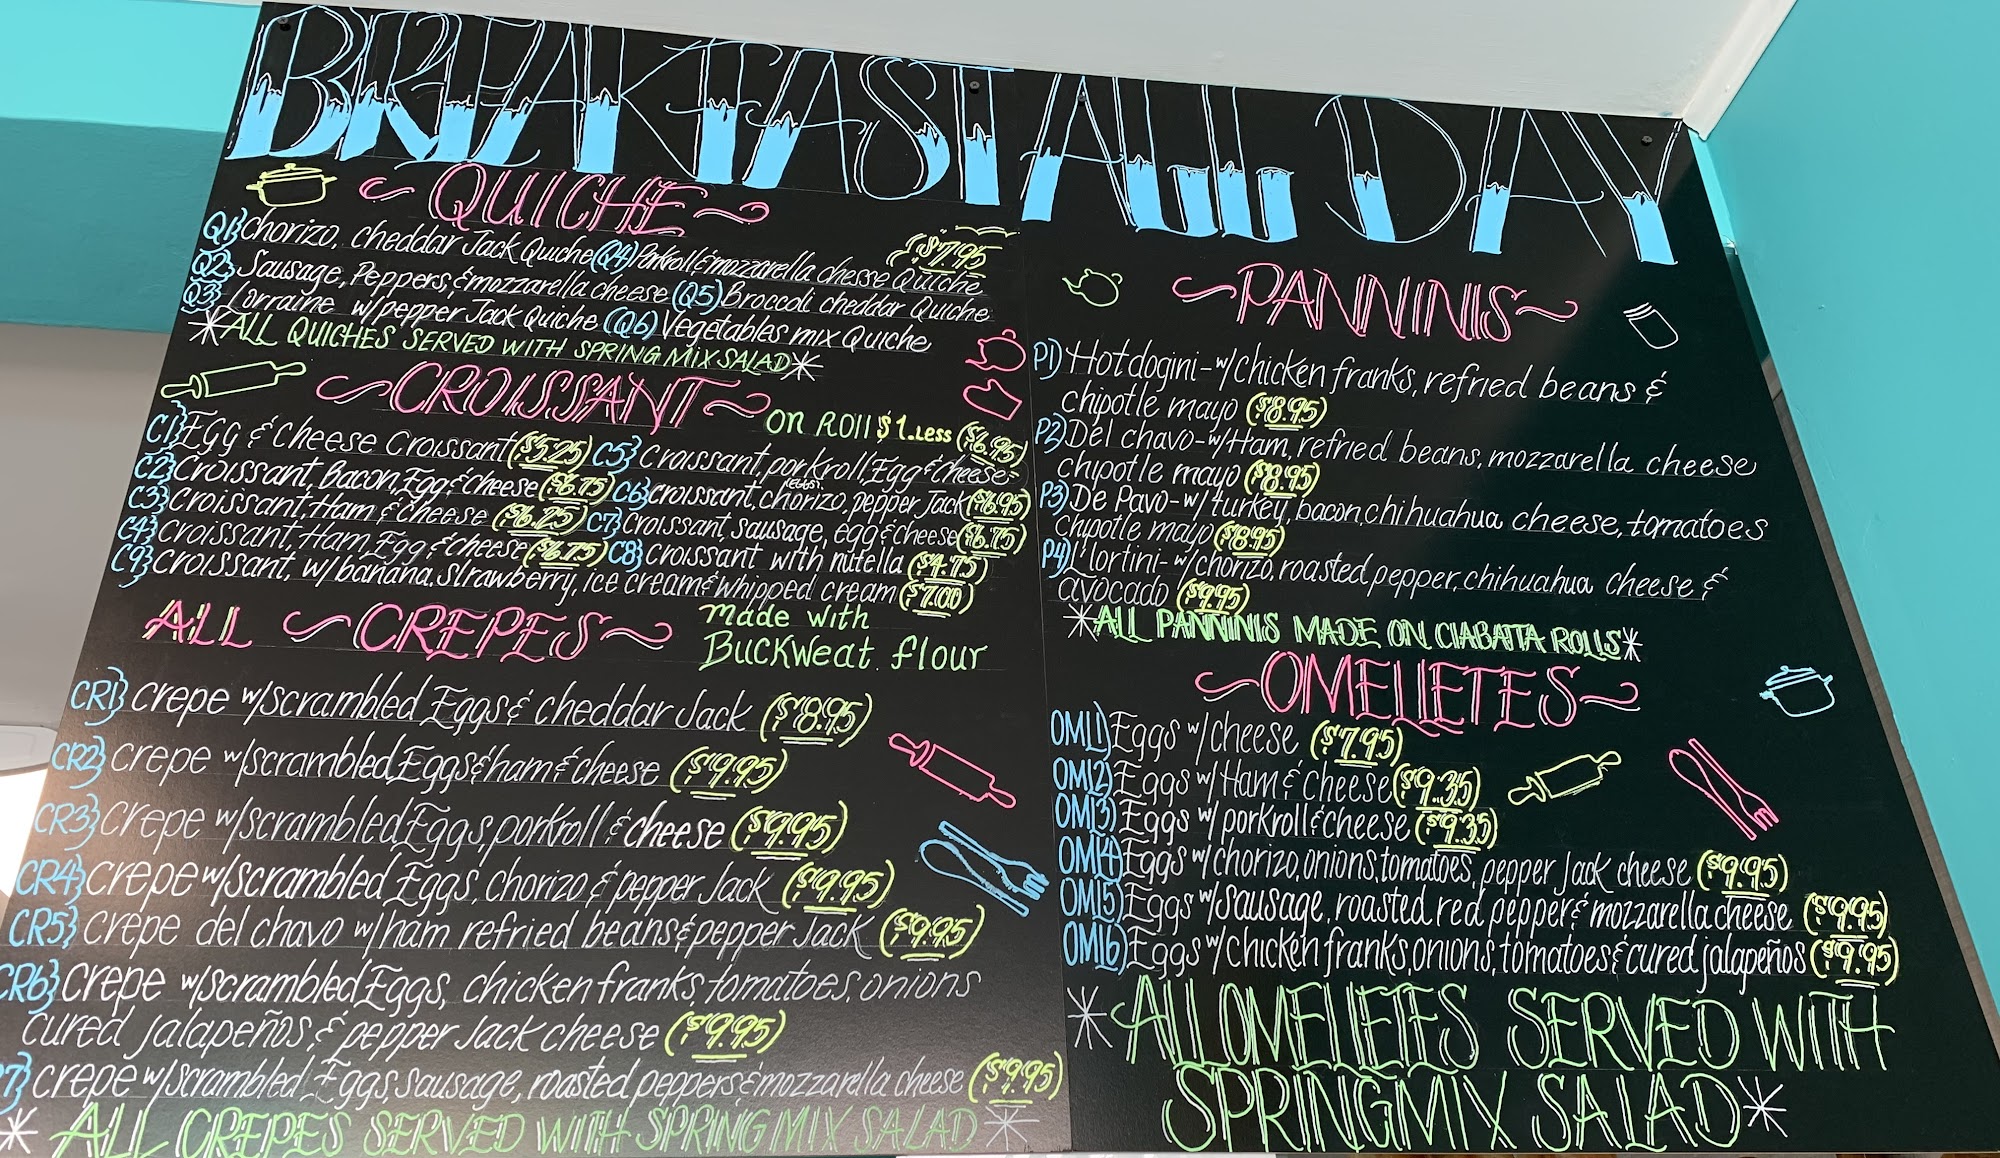 BREAKFAST ALL DAY
QUICHE
Q1} Chorizo, cheddar Jack Quiche (Q4) Porkroll & mozzarella chesse Quiche ($7.95)
Q2} Sausage, Peppers, & mozzarella cheese (Q5) Broccoli cheddar Quiche
Q3} Lorraine w/pepper Jack Quiche (Q6) Vegetables mix Quiche
*ALL QUICHES SERVED WITH SPRING MIX SALAD*
CROISSANT
ON ROLL $1.Less
C1} Egg & cheese Croissant ($5.25) C5} Croissant, porkroll, Egg & cheese ($6.95)
C2} Croissant, Bacon, Egg & cheese ($6.75) C6} croissant, chorizo, pepper Jack ($6.95)
C3} Croissant, Ham & cheese ($6.25) C7} Croissant, sausage, egg & cheese ($6.75)
C4} Croissant, Ham, Egg & cheese ($6.75) C8} croissant with nutella ($4.75)
C9} Croissant, w/banana, strawberry, ice cream & whipped cream ($7.00)
ALL CREPES
Made with
Buckweat flour
CR1} crepe w/scrambled Eggs & cheddar Jack ($8.95)
CR2} crepe w/scrambled Eggs & ham & cheese ($9.95)
CR3} crepe w/scrambled Eggs, porkroll & cheese ($9.95)
CR4} crepe w/scrambled Eggs, chorizo & pepper Jack ($9.95)
CR5} crepe del chavo w/ham, refried beans & pepper Jack ($9.95)
CR6} crepe w/scrambled Eggs, chicken franks, tomatoes, onions
cured jalapeños & pepper Jack cheese ($9.95)
7} crepe w/scrambled Eggs, sausage, roasted peppers & mozzarella cheese ($9.95)
* ALL CREPES SERVED WITH SPRING MIX SALAD *
PANNINIS
P1) Hotdogini - w/chicken franks, refried beans &
chipotle mayo ($8.95)
P2) Del chavo - w/Ham, refried beans, mozzarella cheese
chipotle mayo ($8.95)
P3) De Pavo - w/turkey, bacon, chihuahua cheese, tomatoes
chipotle mayo ($8.95)
P4) L'tortini - w/chorizo, roasted pepper, chihuahua cheese &
avocado ($9.95)
*ALL PANNINIS MADE ON CIABATTA ROLLS*
OMELLETES
OML1) Eggs w/cheese ($7.95)
OML2) Eggs w/Ham & cheese ($9.35)
OML3) Eggs w/porkroll & cheese ($9.35)
OML4) Eggs w/chorizo, onions, tomatoes, pepper Jack cheese ($9.95)
OML5) Eggs w/sausage, roasted red pepper & mozzarella cheese ($9.95)
OML6) Eggs w/chicken franks, onions, tomatoes & cured jalapeños ($9.95)
* ALL OMELLETES SERVED WITH
SPRING MIX SALAD *